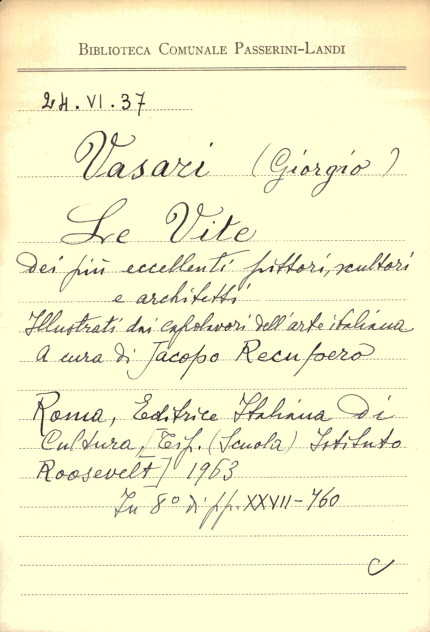 BIBLIOTECA COMUNALE PASSERINI-LANDI
24.VI.37
Vasari (Giorgio)
Le Vite
dei più eccellenti pittori, scultori
e architetti
Illustrati dai capolavori dell'arte italiana
A cura di Jacopo Recupero
Roma, Editrice Italiana di
Cultura, [Tip. (Scuola) Istituto
Roosevelt] 1963
In 8° di pp. XXVII-760
C